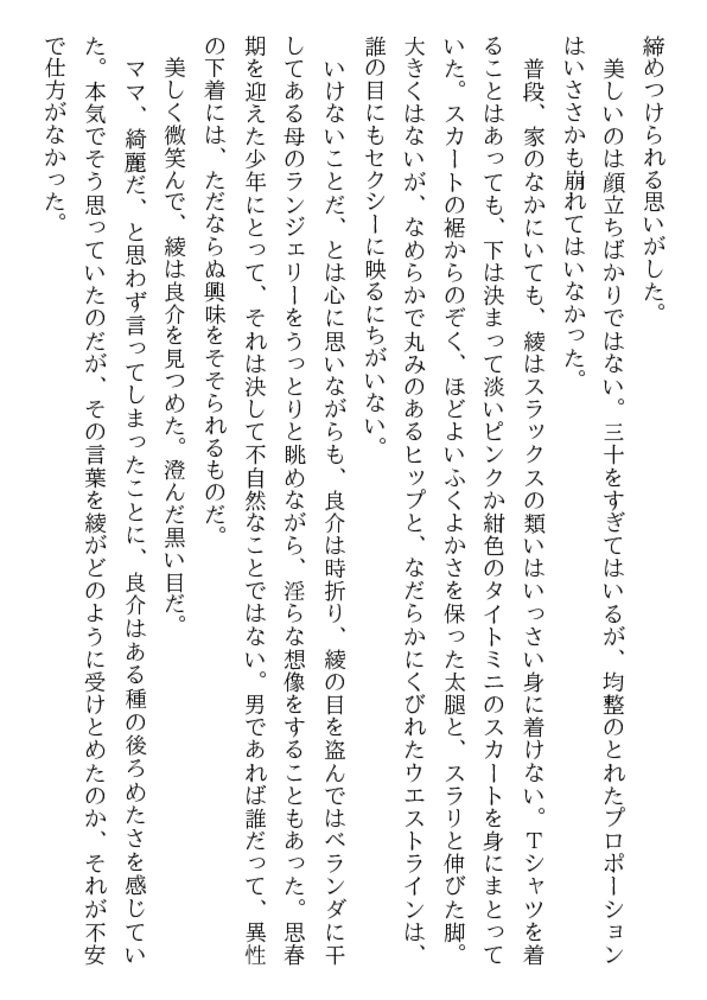 締めつけられる思いがした。
美しいのは顔立ちばかりではない。三十をすぎてはいるが、均整のとれたプロポーション
はいささかも崩れてはいなかった。
普段、家のなかにいても、綾はスラックスの類いはいっさい身に着けない。Tシャツを着
ることはあっても、下は決まって淡いピンクか紺色のタイトミニのスカートを身にまとって
いた。スカートの裾からのぞく、ほどよいふくよかさを保った太腿と、スラリと伸びた脚。
大きくはないが、なめらかで丸みのあるヒップと、なだらかにくびれたウエストラインは、
誰の目にもセクシーに映るにちがいない。
いけないことだ、とは心に思いながらも、良介は時折り、綾の目を盗んではベランダに干
してある母のランジェリーをうっとりと眺めながら、淫らな想像をすることもあった。思春
期を迎えた少年にとって、それは決して不自然なことではない。男であれば誰だって、異性
の下着には、ただならぬ興味をそそられるものだ。
美しく微笑んで、綾は良介を見つめた。澄んだ黒い目だ。
ママ、綺麗だ、と思わず言ってしまったことに、良介はある種の後ろめたさを感じてい
た。本気でそう思っていたのだが、その言葉を綾がどのように受けとめたのか、それが不安
で仕方がなかった。